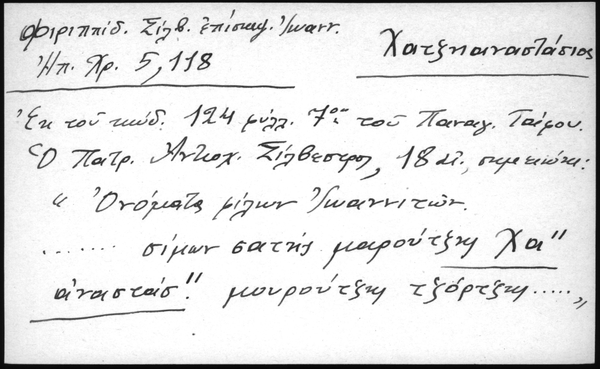 Φιλιππίδ. Σίλβ. ἐπίσκεψ. Ἰωανν.
Χατζηαναστάσιος
Ἠπ. Χρ. 5, 118
Ἐκ τοῦ κώδ. 124 φύλλ. 7ον τοῦ Παναγ. Τάφου.
Ὁ Πατρ. Ἀντιοχ. Σίλβεστρος, 18 αἰ., σημειώνει:
" Ὀνόματα φίλων Ἰωαννιτῶν.
....... σίμων σατής μαρούτζης χα"
ἀναστάσ". μουρούτζης τζόρτζης ..... "